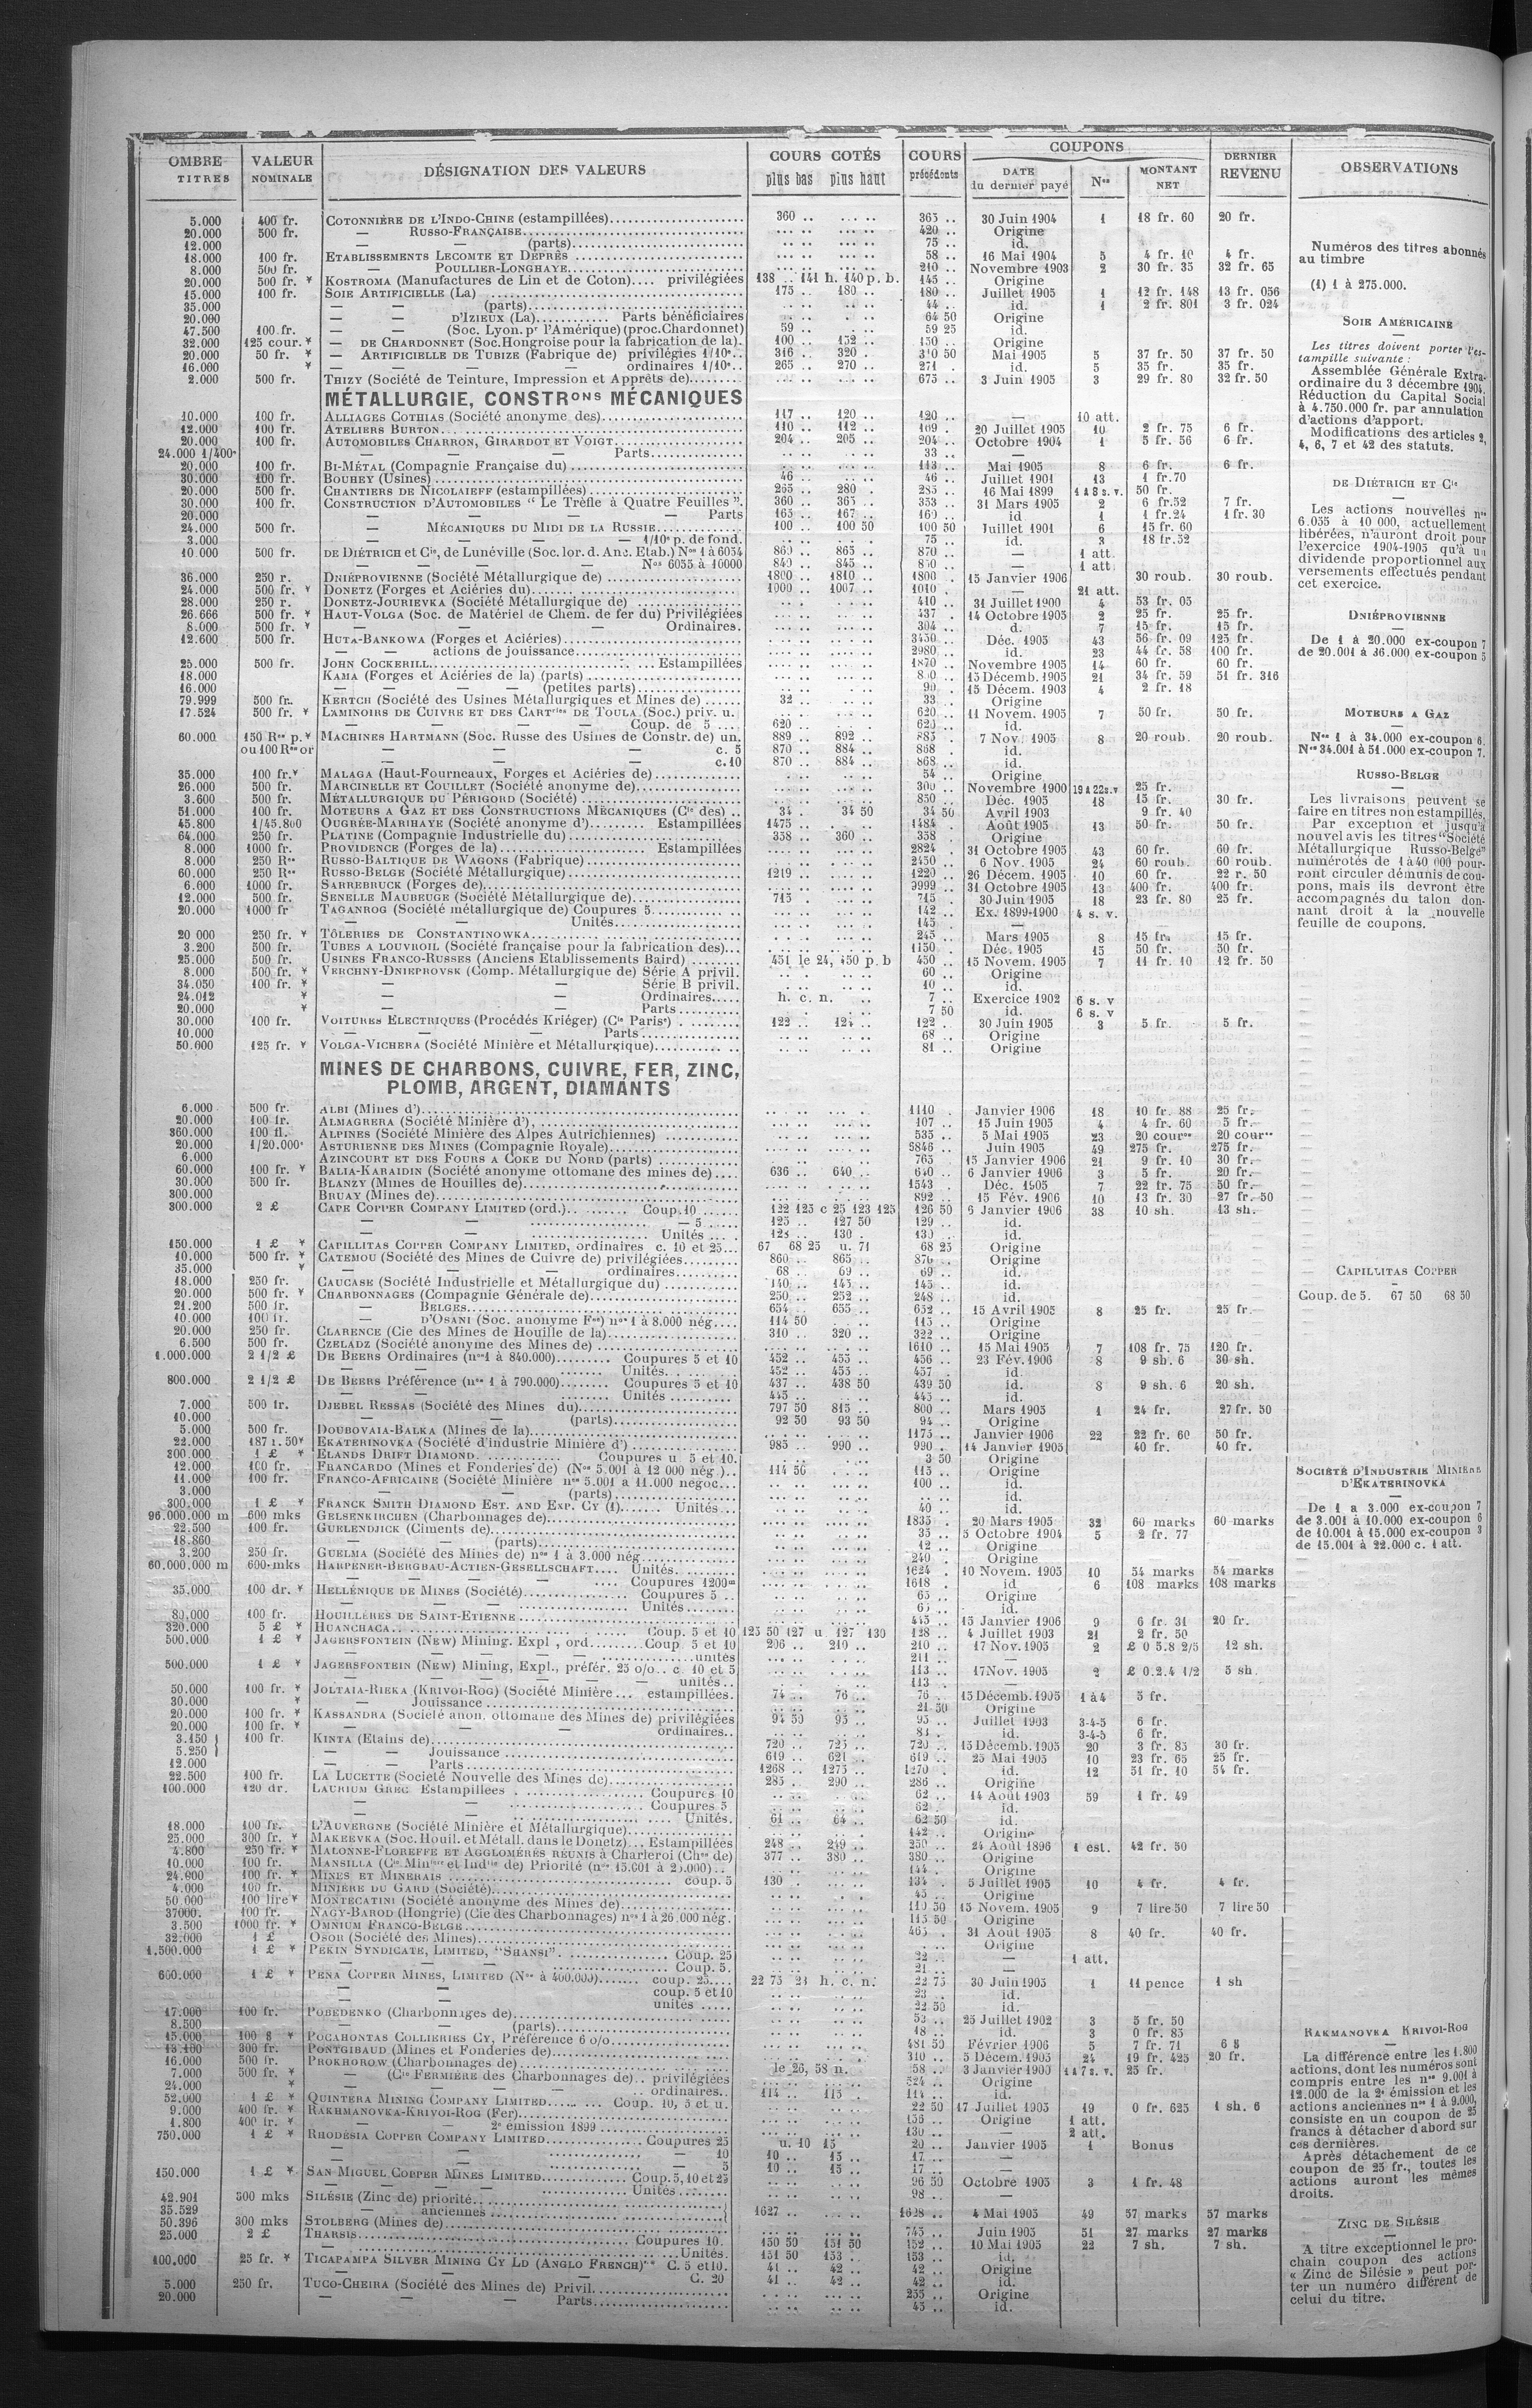 OMBRE TITRES | VALEUR NOMINALE | DÉSIGNATION DES VALEURS | COURS COTÉS plus bas plus haut | COURS précédents | COUPONS DATE du dernier payé | Nos | MONTANT NET | DERNIER REVENU | OBSERVATIONS
5.000 400 fr. COTONNIÈRE DE L'INDO-CHINE (estampillées) 360 .. 365 .. 30 Juin 1904 1 18 fr. 60 20 fr.
20.000 500 fr. — RUSSO-FRANÇAISE 420 .. Origine
12.000 — — (parts) 75 .. id.
18.000 100 fr. ETABLISSEMENTS LECOMTE ET DEPRÈS 58 .. 16 Mai 1904 5 4 fr. 10 4 fr.
8.000 500 fr. — POULLIER-LONGHAYE 210 .. Novembre 1903 2 30 fr. 35 32 fr. 65
20.000 500 fr. * KOSTROMA (Manufactures de Lin et de Coton).... privilégiées 138 .. 141 h. 140 p. b. 145 .. Origine
15.000 100 fr. SOIE ARTIFICIELLE (La) 175 .. 180 .. 180 .. Juillet 1905 1 12 fr. 148 13 fr. 056
35.000 — — (parts) 44 .. id. 1 2 fr. 801 3 fr. 024
20.000 — — D'IZIEUX (La) Parts bénéficiaires 64 50 Origine
47.500 100 fr. — — (Soc. Lyon. pr l'Amérique) (proc. Chardonnet) 59 .. 59 25 id.
32.000 125 cour. * — DE CHARDONNET (Soc. Hongroise pour la fabrication de la) 100 .. 152 .. 150 .. Origine
20.000 50 fr. * — ARTIFICIELLE DE TUBIZE (Fabrique de) privilégiés 1/10e 316 .. 320 . 310 50 Mai 1905 5 37 fr. 50 37 fr. 50
16.000 * — — — — ordinaires 1/10e 265 .. 270 .. 271 . id. 5 35 fr. 35 fr.
2.000 500 fr. THIZY (Société de Teinture, Impression et Apprêts de) 675 .. 3 Juin 1905 3 29 fr. 80 32 fr. 50
MÉTALLURGIE, CONSTRons MÉCANIQUES
10.000 100 fr. ALLIAGES COTHIAS (Société anonyme des) 117 .. 120 .. 120 .. — 10 att.
12.000 100 fr. ATELIERS BURTON 110 .. 112 .. 109 . 20 Juillet 1905 10 2 fr. 75 6 fr.
20.000 100 fr. AUTOMOBILES CHARRON, GIRARDOT ET VOIGT 204 .. 205 .. 204 .. Octobre 1904 1 5 fr. 56 6 fr.
24.000 1/400e — — — Parts 33 .. —
20.000 100 fr. BI-MÉTAL (Compagnie Française du) 113 .. Mai 1905 8 6 fr. 6 fr.
30.000 100 fr. BOUHEY (Usines) 46 .. 46 .. Juillet 1901 13 1 fr. 70
20.000 500 fr. CHANTIERS DE NICOLAIEFF (estampillées) 265 .. 280 . 285 .. 16 Mai 1899 1 à 8 s. v. 50 fr.
30.000 100 fr. CONSTRUCTION D'AUTOMOBILES “ Le Trèfle à Quatre Feuilles ” 360 .. 365 .. 353 .. 31 Mars 1905 2 6 fr.52 7 fr.
20.000 — — — — Parts 165 .. 167 .. 160 .. id 1 1 fr.24 1 fr. 30
24.000 500 fr. — MÉCANIQUES DU MIDI DE LA RUSSIE 100 .. 100 50 100 50 Juillet 1901 6 15 fr. 60
3.000 — — — — 1/10e p. de fond. 75 .. id. 3 18 fr.52
10.000 500 fr. DE DIÉTRICH et Cie, de Lunéville (Soc. lor. d. Anc. Etab.) Nos 1 à 6054 860 .. 865 .. 870 .. — 1 att.
— — — — Nos 6055 à 10000 840 .. 845 .. 850 .. — 1 att.
36.000 250 r. DNIÉPROVIENNE (Société Métallurgique de) 1800 .. 1810 .. 1800 . 15 Janvier 1906 30 roub. 30 roub.
24.000 500 fr. * DONETZ (Forges et Aciéries du) 1000 .. 1007 .. 1010 . — 21 att.
28.000 250 r. DONETZ-JOURIEVKA (Société Métallurgique de) 410 .. 31 Juillet 1900 4 53 fr. 05
26.666 500 fr. * HAUT-VOLGA (Soc. de Matériel de Chem. de fer du) Privilégiées 437 . 14 Octobre 1905 2 25 fr. 25 fr.
8.000 500 fr. * — — — — Ordinaires. 304 .. d. 7 15 fr. 15 fr.
12.600 500 fr. HUTA-BANKOWA (Forges et Aciéries) 3450 .. Déc. 1905 43 56 fr. 09 125 fr.
— — actions de jouissance 2980 .. id. 23 44 fr. 58 100 fr.
25.000 500 fr. JOHN COCKERILL Estampillées 1870 .. Novembre 1905 14 60 fr. 60 fr.
18.000 KAMA (Forges et Aciéries de la) (parts) 15 Décemb. 1905 21 34 fr. 59 51 fr. 316
16.000 — — — — (petites parts) 90 .. 15 Décem. 1903 4 2 fr. 18
79.999 500 fr. KERTCH (Société des Usines Métallurgiques et Mines de) 32 .. 33 . Origine
17.524 500 fr. * LAMINOIRS DE CUIVRE ET DES CARTries DE TOULA (Soc.) priv. u. 620 .. 11 Novem. 1905 7 50 fr. 50 fr.
— — — — Coup. de 5 620 .. 620 .. id.
60.000 150 Res p. * MACHINES HARTMANN (Soc. Russe des Usines de Constr. de) un. 889 .. 892 .. 885 .. 7 Nov. 1905 8 20 roub. 20 roub.
ou 100 Res or — — — c. 5 870 .. 884 .. 868 . id.
— — — c. 10 870 .. 884 .. 868 .. id.
35.000 100 fr. * MALAGA (Haut-Fourneaux, Forges et Aciéries de) 54 .. Origine
26.000 500 fr. MARCINELLE ET COUILLET (Société anonyme de) 300 .. Novembre 1900 19 à 22 s. v 25 fr.
3.600 500 fr. MÉTALLURGIQUE DU PÉRIGORD (Société) 850 .. Déc. 1905 18 15 fr. 30 fr.
51.000 100 fr. MOTEURS A GAZ ET DES CONSTRUCTIONS MÉCANIQUES (Cie des) 34 . 34 50 34 50 Avril 1903 9 fr. 40
45.800 1/45.800 OUGRÉE-MARIHAYE (Société anonyme d') Estampillées 1475 .. 1484 . Août 1905 13 50 fr. 50 fr.
64.000 250 fr. PLATINE (Compagnie Industrielle du) 358 .. 360 .. 358 . Origine
8.000 1000 fr. PROVIDENCE (Forges de la) Estampillées 2824 . 31 Octobre 1905 43 60 fr. 60 fr.
8.000 250 Res RUSSO-BALTIQUE DE WAGONS (Fabrique) 2450 .. 6 Nov. 1905 24 60 roub. 60 roub.
60.000 250 Res RUSSO-BELGE (Société Métallurgique) 1219 .. 1220 .. 26 Décem. 1905 10 60 fr. 22 r. 50
6.000 1000 fr. SARREBRUCK (Forges de) 9999 .. 31 Octobre 1905 13 400 fr. 400 fr.
12.000 500 fr. SENELLE MAUBEUGE (Société Métallurgique de) 715 . 715 .. 30 Juin 1905 18 23 fr. 80 25 fr.
20.000 1000 fr TAGANROG (Société métallurgique de) Coupures 5 142 .. Ex. 1899-1900 4 s. v.
— — Unités 145 . —
20 000 250 fr. * TÔLERIES DE CONSTANTINOWKA 245 .. Mars 1905 8 15 fr. 15 fr.
3.200 500 fr. TUBES A LOUVROIL (Société française pour la fabrication des) 1150 . Déc. 1905 15 50 fr. 50 fr.
25.000 500 fr. USINES FRANCO-RUSSES (Anciens Etablissements Baird) 451 le 24, 450 p. b 450 .. 15 Novem. 1905 7 11 fr. 10 12 fr. 50
8.000 500 fr. * VERCHNY-DNIEPROVSK (Comp. Métallurgique de) Série A privil. 60 .. Origine
34.050 100 fr. * — — Série B privil. 10 .. id.
24.012 * — — Ordinaires h. c. n. 7 .. Exercice 1902 6 s. v
20.000 * — — Parts 7 50 id. 6 s. v
30.000 100 fr. VOITURES ELECTRIQUES (Procédés Kriéger) (Cie Parise) 122 .. 124 .. 122 .. 30 Juin 1905 3 5 fr. 5 fr.
10.000 — — — Parts 68 .. Origine
50.000 125 fr. * VOLGA-VICHERA (Société Minière et Métallurgique) 81 .. Origine
MINES DE CHARBONS, CUIVRE, FER, ZINC,
PLOMB, ARGENT, DIAMANTS
6.000 500 fr. ALBI (Mines d') 1110 . Janvier 1906 18 10 fr. 88 25 fr.
20.000 100 fr. ALMAGRERA (Société Minière d') 107 .. 15 Juin 1905 4 4 fr. 60 5 fr.
360.000 100 fl. ALPINES (Société Minière des Alpes Autrichiennes) 535 .. 5 Mai 1905 23 20 cour 20 cour
20.000 1/20.000e ASTURIENNE DES MINES (Compagnie Royale) 5846 .. Juin 1905 49 275 fr. 275 fr.
6.000 AZINCOURT ET DES FOURS A COKE DU NORD (parts) 765 .. 15 Janvier 1906 21 9 fr. 10 30 fr.
60.000 100 fr. * BALIA-KARAIDIN (Société anonyme ottomane des mines de) 636 .. 640 .. 640 .. 6 Janvier 1906 3 5 fr. 20 fr.
30.000 500 fr. BLANZY (Mines de Houilles de) 1543 . Déc. 1905 7 22 fr. 75 50 fr.
300.000 BRUAY (Mines de) 892 .. 15 Fév. 1906 10 13 fr. 30 27 fr. 50
300.000 2 £ CAPE COPPER COMPANY LIMITED (ord.) Coup. 10 122 125 c 25 123 125 126 50 6 Janvier 1906 38 10 sh. 13 sh.
— — — 5 125 .. 127 50 129 .. id.
— — Unités 128 .. 130 . 130 .. id.
150.000 1 £ * CAPILLITAS COPPER COMPANY LIMITED, ordinaires c. 10 et 25 67 68 25 u. 71 68 25 Origine
10.000 500 fr. * CATEMOU (Société des Mines de Cuivre de) privilégiées 860 .. 865 .. 870 .. Origine
35.000 * — — — ordinaires 68 .. 69 .. 69 .. id.
18.000 250 fr. CAUCASE (Société Industrielle et Métallurgique du) 140 .. 145 .. 145 .. id.
20.000 500 fr. * CHARBONNAGES (Compagnie Générale de) 250 .. 252 .. 248 .. id.
21.200 500 fr. — BELGES 654 .. 655 .. 652 .. 15 Avril 1905 8 25 fr. 25 fr.
10.000 100 fr. — D'OSANI (Soc. anonyme Fse) nos 1 à 8.000 nég. 114 50 115 .. Origine
20.000 250 fr. CLARENCE (Cie des Mines de Houille de la) 310 .. 320 .. 322 .. Origine
6.500 500 fr. CZELADZ (Société anonyme des Mines de) 1610 .. 15 Mai 1905 7 108 fr. 75 120 fr.
1.000.000 2 1/2 £ DE BEERS Ordinaires (nos 1 à 840.000) Coupures 5 et 10 452 .. 455 .. 456 .. 23 Fév. 1906 8 9 sh. 6 30 sh.
— — Unités 452 .. 455 .. 457 . id.
800.000 2 1/2 £ DE BEERS Préférence (nos 1 à 790.000) Coupures 5 et 10 437 .. 438 50 439 50 id. 8 9 sh. 6 20 sh.
— — Unités 445 .. 445 .. id.
7.000 500 fr. DJEBEL RESSAS (Société des Mines du) 797 50 815 .. 800 .. Mars 1905 1 24 fr. 27 fr. 50
10.000 — — (parts) 92 50 93 50 94 .. Origine
5.000 500 fr. DOUBOVAIA-BALKA (Mines de la) 1175 .. Janvier 1906 22 22 fr. 60 50 fr.
22.000 187 r. 50 * EKATERINOVKA (Société d'industrie Minière d') 985 .. 990 .. 990 . 14 Janvier 1905 40 fr. 40 fr.
300.000 1 £ * ELANDS DRIFT DIAMOND Coupures u 5 et 10 3 50 Origine
12.000 100 fr. FRANCARDO (Mines et Fonderies de) (Nos 5.001 à 12 000 nég.) 114 50 115 .. Origine
11.000 100 fr. FRANCO-AFRICAINE (Société Minière nos 5.001 a 11.000 négoc. 100 .. id.
3.000 — — (parts) id.
300.000 1 £ * FRANCK SMITH DIAMOND EST. AND EXP. CY (1) Unités 40 .. id.
96.000.000 m 600 mks GELSENKIRCHEN (Charbonnages de) 1835 .. 20 Mars 1905 32 60 marks 60 marks
22.500 100 fr. GUELENDJICK (Ciments de) 35 .. 5 Octobre 1904 5 2 fr. 77
18.860 — — (parts) 12 .. Origine
3.200 250 fr. GUELMA (Société des Mines de) nos 1 à 3.000 nég. 240 . Origine
60.000.000 m 600 mks HARPENER-BERGBAU-ACTIEN-GESELLSCHAFT Unités 1624 . 10 Novem. 1905 10 54 marks 54 marks
— — Coupures 1200m 1618 . id 6 108 marks 108 marks
35.000 100 dr. * HELLÉNIQUE DE MINES (Société) Coupures 5 65 .. Origine
— — Unités 65 .. id.
80.000 100 fr. HOUILLÈRES DE SAINT-ETIENNE 445 .. 15 Janvier 1906 9 6 fr. 31 20 fr.
320.000 5 £ * HUANCHACA Coup. 5 et 10 125 50 127 u 127 130 128 .. 4 Juillet 1903 21 2 fr. 50
500.000 1 £ * JAGERSFONTEIN (NEW) Mining. Expl, ord Coup 5 et 10 206 .. 210 .. 210 .. 17 Nov. 1905 2 £ 0 5.8 2/5 12 sh.
— — — unités 211 .. —
500.000 1 £ * JAGERSFONTEIN (NEW) Mining, Expl., préfér. 25 o/o c. 10 et 5 113 .. 17 Nov. 1905 2 £ 0.2.4 1/2 5 sh.
— — unités 113 . —
50.000 100 fr. * JOLTAIA-RIEKA (KRIVOI-ROG) (Société Minière estampillées. 74 .. 76 .. 76 .. 15 Décemb. 1905 1 à 4 5 fr.
30.000 * — Jouissance 21 50 Origine
20.000 100 fr. * KASSANDRA (Société anon. ottomane des Mines de) privilégiées 94 50 95 .. 95 .. Juillet 1903 3-4-5 6 fr.
20.000 100 fr. * — — — ordinaires 84 .. id. 3-4-5 6 fr.
3.150 100 fr. KINTA (Etains de) 720 .. 725 .. 720 .. 15 Décemb. 1905 20 3 fr. 85 30 fr.
5.250 — — Jouissance 619 .. 621 .. 619 .. 25 Mai 1905 10 23 fr. 65 25 fr.
12.000 — — Parts 1268 .. 1275 .. 1270 .. id. 12 51 fr. 10 54 fr.
22.500 100 fr. LA LUCETTE (Société Nouvelle des Mines de) 285 .. 290 .. 286 .. Origine
100.000 120 dr. LAURIUM GREC Estampillées Coupures 10 62 .. 14 Août 1903 59 1 fr. 49
— — Coupures 5 62 . id.
— — Unités. 61 .. 64 .. 62 50 id.
18.000 100 fr. L'AUVERGNE (Société Minière et Métallurgique) 142 .. Origine
25.000 300 fr. * MAKEEVKA (Soc. Houil. et Métall. dans le Donetz) Estampillées 248 .. 249 .. 250 .. 24 Août 1896 1 est. 42 fr. 50
4.800 250 fr. * MALONNE-FLOREFFE ET AGGLOMÉRÉS RÉUNIS à Charleroi (Chges de) 377 .. 380 .. 380 .. Origine
10.000 100 fr. MANSILLA (Cie Minere et Indlle de) Priorité (nos 15.001 à 25.000) 144 . Origine
24.800 100 fr. * MINES ET MINERAIS coup. 5 130 .. 134 .. 5 Juillet 1905 10 4 fr. 4 fr.
4.000 100 fr. MINIÈRE DU GARD (Société) 45 .. Origine
50 000 100 lire * MONTECATINI (Société anonyme des Mines de) 110 50 15 Novem. 1905 9 7 lire 50 7 lire 50
37000. 100 fr. NAGY-BAROD (Hongrie) (Cie des Charbonnages) nos 1 à 26.000 nég. 115 50 Origine
3.500 1000 fr. * OMNIUM FRANCO-BELGE 465 . 31 Août 1905 8 40 fr. 40 fr.
32.000 1 £ OSOR (Société des Mines) Origine
1.500.000 1 £ * PEKIN SYNDICATE, LIMITED, “SHANSI” Coup. 25 22 .. — 1 att.
— — Coup. 5. 21 .. —
600.000 1 £ * PENA COPPER MINES, LIMITED (Nos à 400.000) coup. 25 22 75 24 h. c. n. 22 75 30 Juin 1905 1 11 pence 1 sh
— — coup. 5 et 10 23 .. id.
— — unités 22 50 id.
17.000 100 fr. POBEDENKO (Charbonnages de) 53 .. 25 Juillet 1902 3 5 fr. 50
8.500 — — (parts) 18 .. id. 3 0 fr. 85
15.000 100 $ * POCAHONTAS COLLIERIES CY, Préférence 6 o/o 481 50 Février 1906 5 7 fr. 71 6 $
13.100 300 fr. PONTGIBAUD (Mines et Fonderies de) 310 .. 5 Décem. 1905 24 19 fr. 425 20 fr.
16.000 500 fr. PROKHOROW (Charbonnages de) le 26, 58 n. 58 .. 3 Janvier 1903 1 à 7 s. v. 25 fr.
7.000 500 fr. * — (Cie FERMIÈRE des Charbonnages de) privilégiées 524 .. Origine
24.000 * — — — ordinaires 114 .. 115 .. 114 .. id.
52.000 1 £ * QUINTERA MINING COMPANY LIMITED Coup. 10, 5 et u. 22 50 17 Juillet 1905 19 0 fr. 625 1 sh. 6
9.000 400 fr. * RAKHMANOVKA-KRIVOI-ROG (Fer) 136 .. Origine 1 att.
1.800 400 fr. * — — 2e émission 1899 130 .. — 2 att.
750.000 1 £ * RHODÉSIA COPPER COMPANY LIMITED Coupures 25 u. 10 15 20 .. Janvier 1905 1 Bonus
— — 10 10 .. 15 .. 17 .. —
— — 5 10 .. 15 .. 17 .. —
150.000 1 £ * SAN MIGUEL COPPER MINES LIMITED Coup. 5, 10 et 25 96 50 Octobre 1905 3 1 fr. 48
— — Unités 98 .. —
42.901 300 mks SILÉSIE (Zinc de) priorité
35.529 — anciennes 1627 .. 1628 .. 4 Mai 1905 49 57 marks 57 marks
50.396 300 mks STOLBERG (Mines de) 745 .. Juin 1905 51 27 marks 27 marks
25.000 2 £ THARSIS Coupures 10. 150 50 151 50 152 .. 10 Mai 1905 22 7 sh. 7 sh.
— Unités. 151 50 153 . 153 .. id.
100.000 25 fr. * TICAPAMPA SILVER MINING CY LD (ANGLO FRENCH) C. 5 et 10. 41 .. 42 .. 42 .. Origine
— — C. 20 41 .. 42 .. 42 .. id.
5.000 250 fr. TUCO-CHEIRA (Société des Mines de) Privil. 255 .. Origine
20.000 — — — Parts 45 .. id.
Numéros des titres abonnés
au timbre
(1) 1 à 275.000.
SOIE AMÉRICAINE
Les titres doivent porter l'es-
tampille suivante :
Assemblée Générale Extra-
ordinaire du 3 décembre 1904.
Réduction du Capital Social
à 4.750.000 fr. par annulation
d'actions d'apport.
Modifications des articles 2,
4, 6, 7 et 42 des statuts.
DE DIÉTRICH ET Cie
Les actions nouvelles nos
6.055 à 10 000, actuellement
libérées, n'auront droit pour
l'exercice 1904-1905 qu'à un
dividende proportionnel aux
versements effectués pendant
cet exercice.
DNIÉPROVIENNE
De 1 à 20.000 ex-coupon 7
de 20.001 à 36.000 ex-coupon 5
MOTEURS A GAZ
Nos 1 à 34.000 ex-coupon 6.
Nos 34.001 à 51.000 ex-coupon 7.
RUSSO-BELGE
Les livraisons peuvent se
faire en titres non estampillés.
Par exception et jusqu'à
nouvel avis les titres “Société
Métallurgique Russo-Belge”
numérotés de 1 à 40 000 pour-
ront circuler démunis de cou-
pons, mais ils devront être
accompagnés du talon don-
nant droit à la nouvelle
feuille de coupons.
CAPILLITAS COPPER
Coup. de 5. 67 50 68 50
SOCIÉTÉ D'INDUSTRIE MINIÈRE
D'EKATERINOVKA
De 1 a 3.000 ex-coupon 7
de 3.001 à 10.000 ex-coupon 6
de 10.001 à 15.000 ex-coupon 3
de 15.001 à 22.000 c. 1 att.
RAKMANOVKA KRIVOI-ROG
La différence entre les 1.800
actions, dont les numéros sont
compris entre les nos 9.001 à
12.000 de la 2e émission et les
actions anciennes nos 1 à 9.000,
consiste en un coupon de 25
francs à détacher d'abord sur
ces dernières.
Après détachement de ce
coupon de 25 fr., toutes les
actions auront les mêmes
droits.
ZINC DE SILÉSIE
A titre exceptionnel le pro-
chain coupon des actions
« Zinc de Silésie » peut por-
ter un numéro différent de
celui du titre.